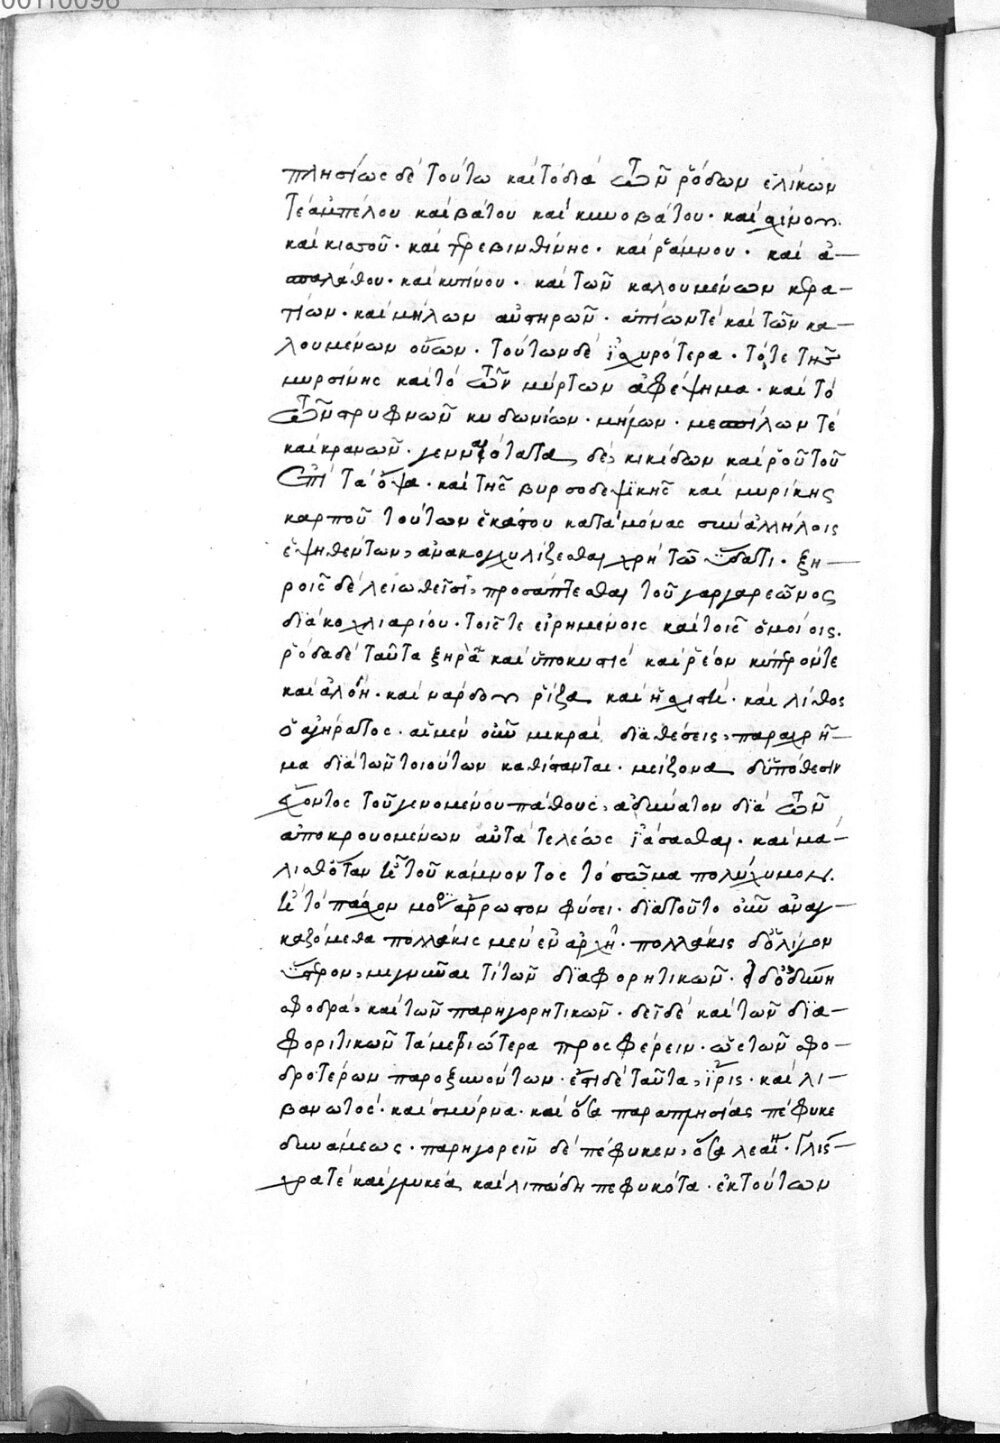 πλησίως δὲ τούτω καὶ τὸ διὰ τῶν ῥόδων ἑλίκων
τὲ ἀμπέλου καὶ βάτου καὶ κυνοβάτου· καὶ σχίνου.
καὶ κισσοῦ· καὶ τρεβινθίνης· καὶ ῥάμνου· καὶ ἀ–
σπαλάθου· καὶ κυτίνου· καὶ τῶν καλουμένων κερα–
τίων· καὶ μήλων αὐστηρῶν· ἀπίων τὲ καὶ τῶν κα–
λουμένων οὔων· τούτων δὲ ἰσχυρότερα· τό,τε τῆς
μυρσίνης καὶ τὸ τῶν μύρτων ἀφέψημα· καὶ τὸ
τῶν στρυφνῶν κυδωνίων· μήλων· μεσπίλων τὲ
καὶ κρανιῶν· γενναιότατα δὲ, κικίδων καὶ ῥοῦ τοῦ
ἐπὶ τὰ ὄψα· καὶ τῆς βυρσοδεψϊκῆς καὶ μυρίκης
καρποῦ τούτων ἑκάστου καταμόνας σὺν ἀλλήλοις
ἑψηθέντων, ἀνακογχυλίζεσθαι χρὴ τῶ ὕδατι· ξη–
ροῖς δὲ λειωθεῖσι, προσάπτεσθαι τοῦ γαργαρεῶνος
διὰ κοχλιαρίου· τοῖς τε εἰρημένοις καὶ τοῖς ὁμοίοις.
ῥόδα δὲ ταῦτα ξηρὰ καὶ ὑποκυστὶς καὶ ῥέον κύπερόν τε
καὶ ἀλόη· καὶ νάρδου ῥίζα καὶ ἡ σχιστὴ· καὶ λίθος
ὁ ἀγήρατος· αἱ μὲν οὖν μικραὶ διαθέσεις, παραχρῆ–
μα διὰ τῶν τοιούτων καθίστανται· μείζονα δ' ὑπόθεσιν
ἔχοντος τοῦ γενομένου πάθους, ἀδύνατον διὰ τῶν
ἀποκρουομένων αὐτὰ τελέως ἰάσασθαι· καὶ μά–
λισθ' ὅταν ἦ τοῦ κάμνοντος τὸ σῶμα πολύχυμον.
ἢ τὸ πάσχον μόριον ἄρρωστον φύσει· διατοῦτο οὖν ἀναγ–
καζόμεθα πολλάκις μὲν ἐν ἀρχῆ· πολλάκις δ' ὀλίγον
ὕστερον, μιγνύναι τὶ τῶν διαφορητικῶν· εἰ δ' ὀδύνη
σφοδρὰ, καὶ τῶν παρηγορητικῶν· δεῖ δὲ καὶ τῶν δια–
φοριτικῶν τὰ μετριώτερα προσφέρειν· ὡς τῶν σφο–
δροτέρων παροξυνόντων· ἔστι δὲ ταῦτα, ἶρις· καὶ λι–
βανωτὸς· καὶ σμύρνα· καὶ ὅσα παραπλησίας πέφυκε
δυνάμεως· παρηγορεῖν δὲ πέφυκεν, ὅσα λεῖα· γλισ–
χρά τὲ καὶ γλυκέα καὶ λιπώδη πεφυκότα· ἐκ τούτων